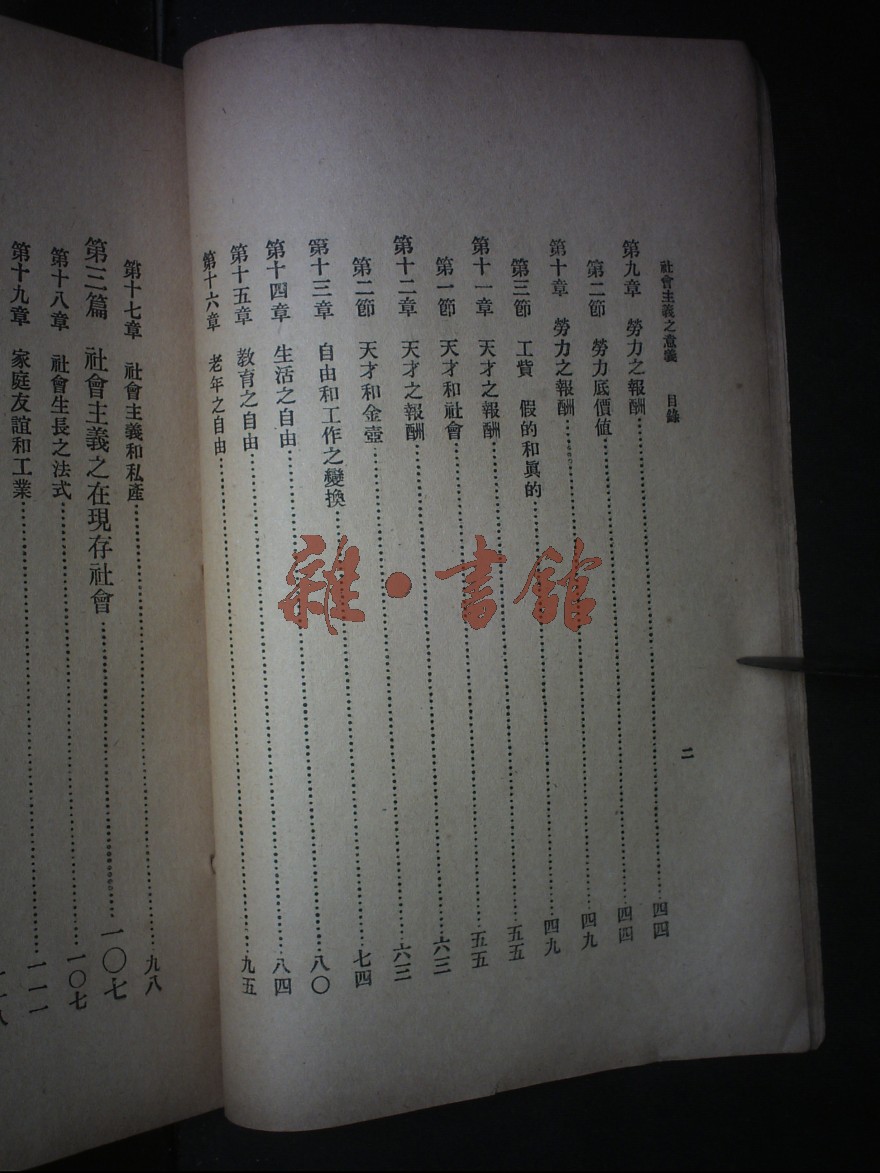 社會主義之意義 目錄 二
第九章 勞力之報酬……四四
第二節 勞力底價值……四四
第十章 勞力之報酬……四九
第三節 工貲 假的和眞的……四九
第十一章 天才之報酬……五五
第一節 天才和社會……五五
第十二章 天才之報酬……六三
第二節 天才和金壺……六三
第十三章 自由和工作之變換……七四
第十四章 生活之自由……八〇
第十五章 教育之自由……八四
第十六章 老年之自由……九五
第十七章 社會主義和私產……九八
第三篇 社會主義之在現存社會……一〇七
第十八章 社會生長之法式……一〇七
第十九章 家庭友誼和工業……一一一
雜·書館